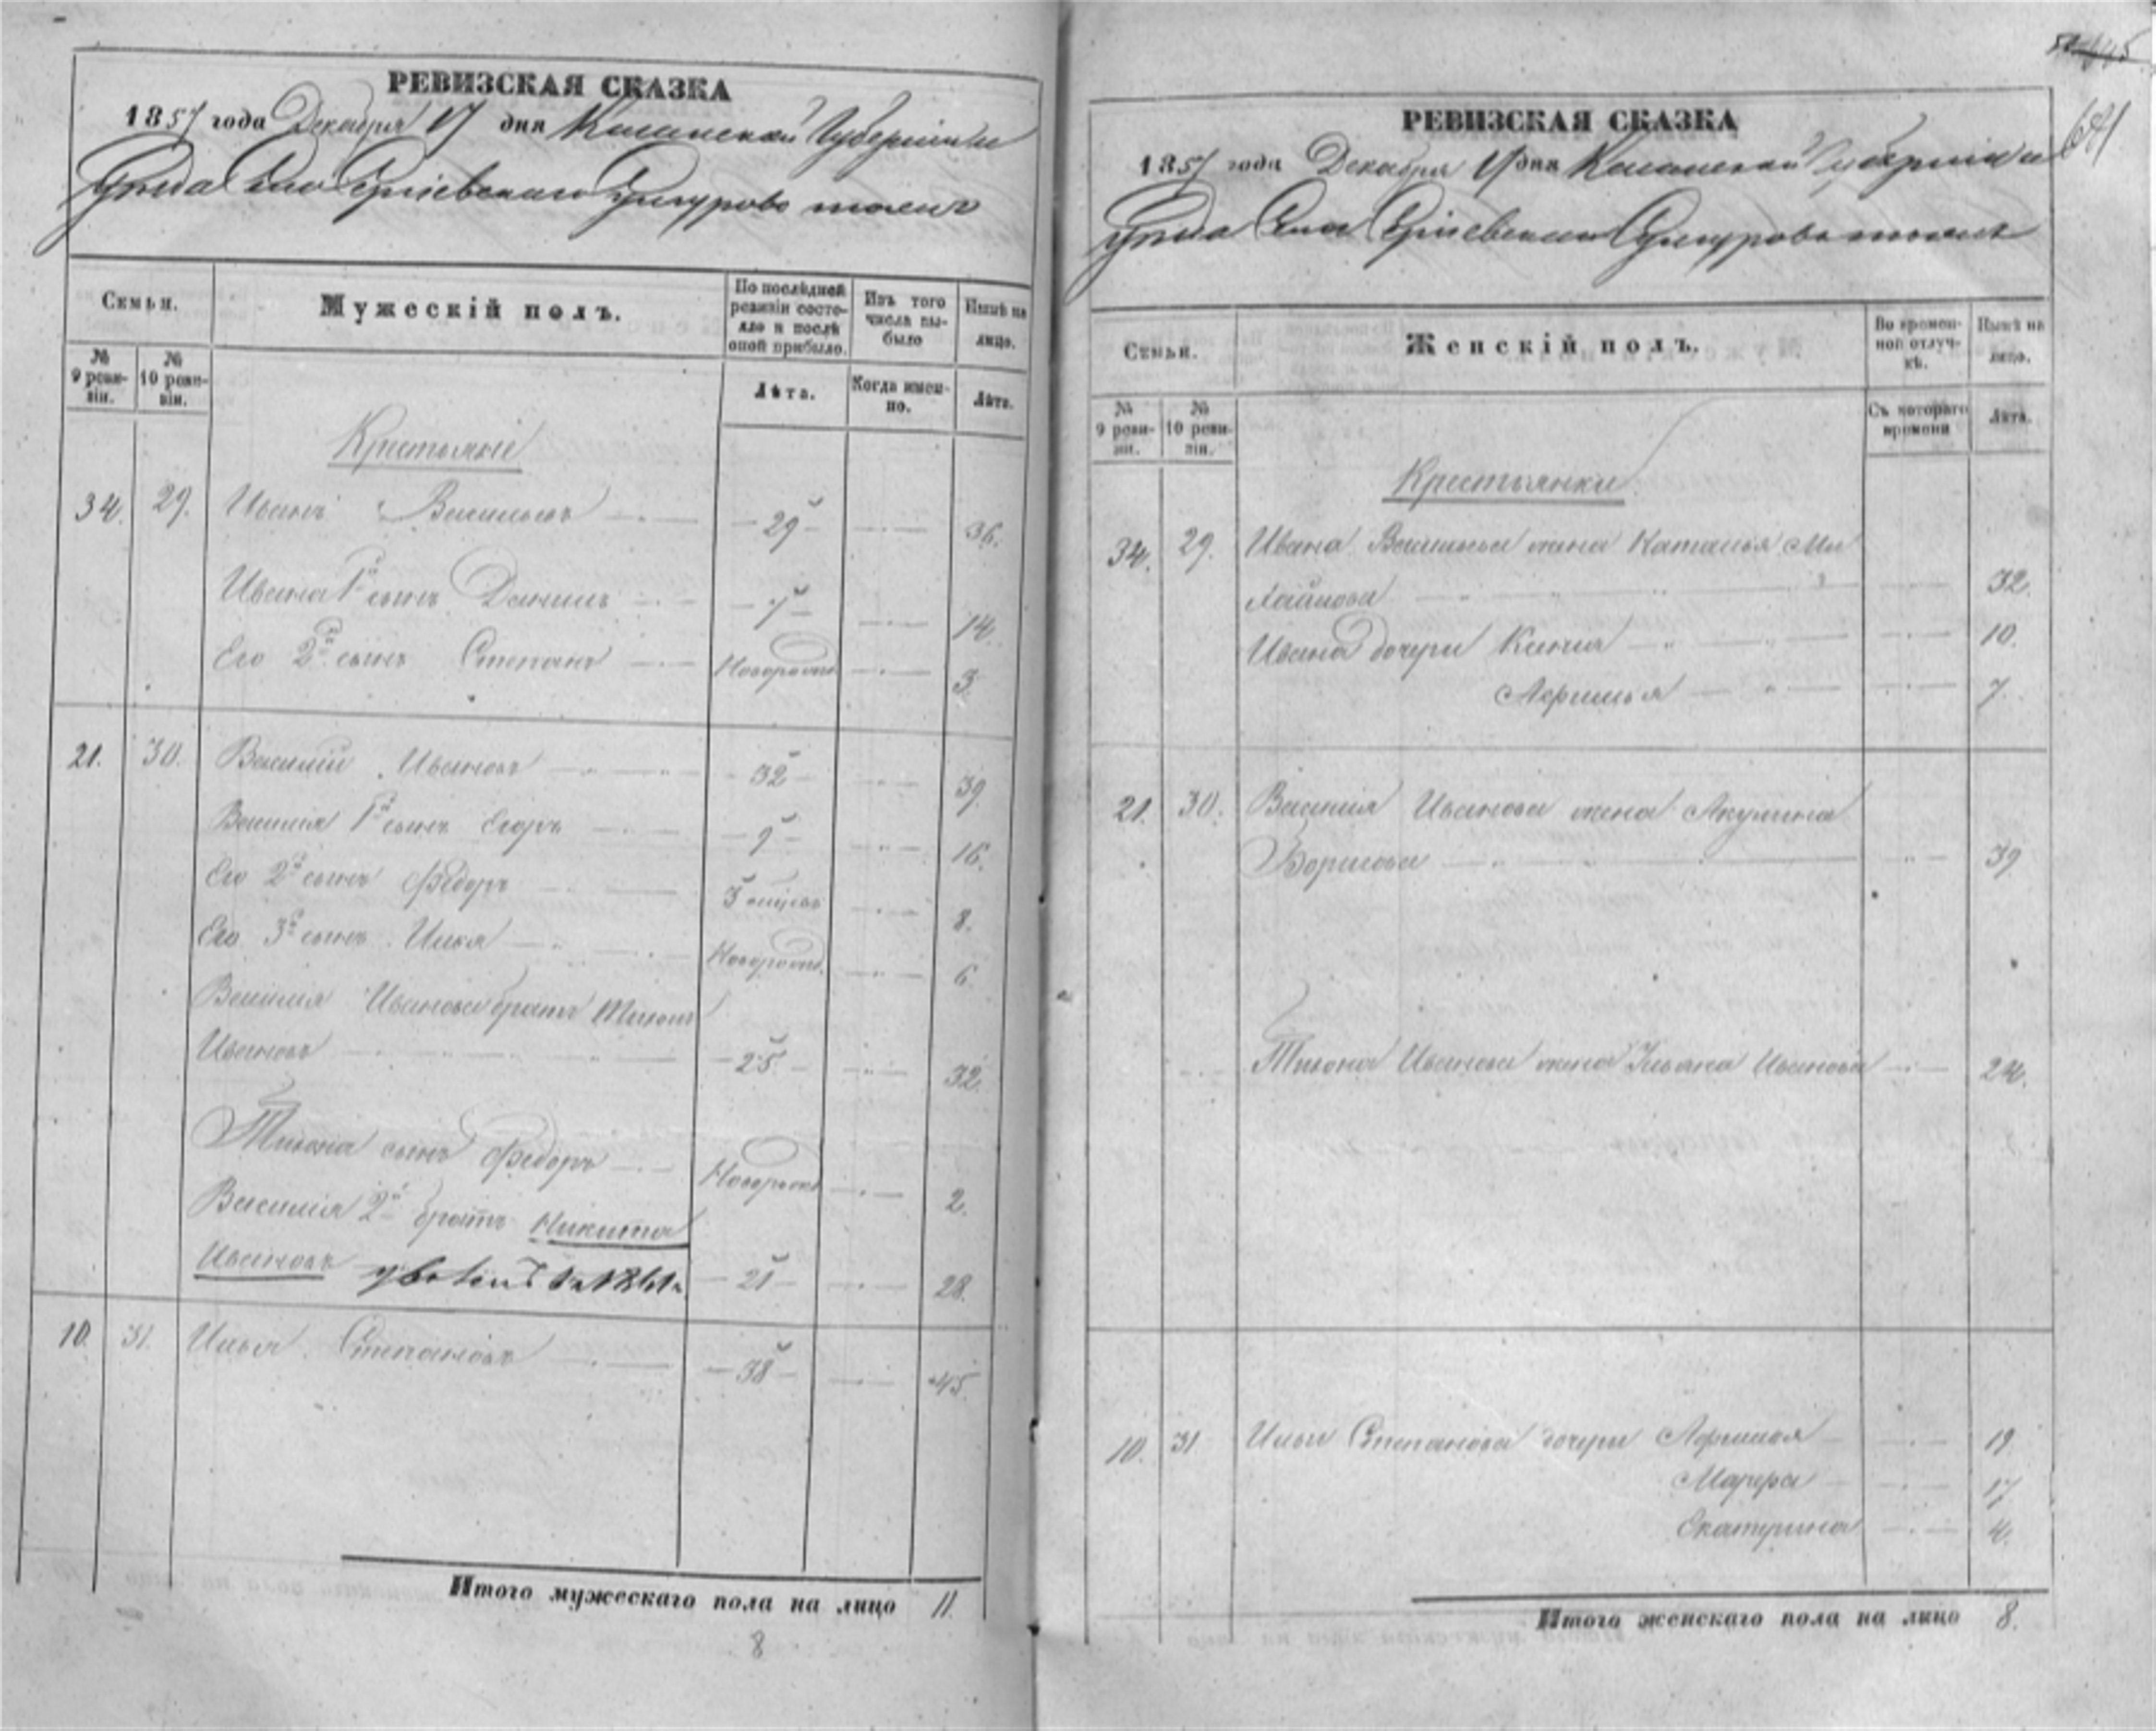 РЕВИЗСКАЯ СКАЗКА
1857 года Декабря 17 дня Казанской Губерніи и
уѣзда Села
Семьи.
Мужескій полъ.
По послѣдней ревизіи состояло и послѣ оной прибыло.
Изъ того числа выбыло
Нынѣ на лицо.
№ 9 ревизіи.
№ 10 ревизіи.
Лѣта.
Когда именно.
Лѣта.
Крестьяне
34. 29. Иванъ Васильевъ 29 36.
Ивана 1й сынъ Данилъ 7 14.
Его 2й сынъ Степанъ Новорожд 3.
21. 30. Василій Ивановъ 32 39.
Василія 1й сынъ Егоръ 9 16.
Его 2й сынъ Ѳедоръ 8.
Его 3й сынъ Илья Новорожд. 6
Василія Иванова братъ Тихонъ
Ивановъ 25 32.
Тихона сынъ Ѳедоръ Новорожд 2.
Василія 2й братъ Никита
Ивановъ 21 28.
10. 31. Илья Степановъ 38 45.
Итого мужескаго пола на лицо 11.
8
641
РЕВИЗСКАЯ СКАЗКА
1857 года Декабря 17 дня Казанской Губерніи и
уѣзда Села
Семьи.
Женскій полъ.
Во временной отлучкѣ.
Нынѣ на лицо.
№ 9 ревизіи.
№ 10 ревизіи.
Съ котораго времени
Лѣта.
Крестьянки
34. 29. Ивана Васильева жена Наталья Ми
хайлова 32.
Ивана дочери Ксенія 10.
Афимья 7.
21. 30. Василія Иванова жена Акулина
Борисова 39
Тихона Иванова жена Ульяна Иванова 24.
10. 31. Ильи Степанова дочери Афимья 19
Марфа 17
Екатерина 4.
Итого женскаго пола на лицо 8.